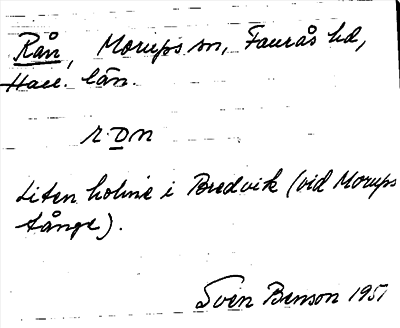 Rån, Morups sn, Faurås hd,
Hall. län.
rɒn
Liten holme i Bredvik (vid Morups
tånge).
Sven Benson 1951